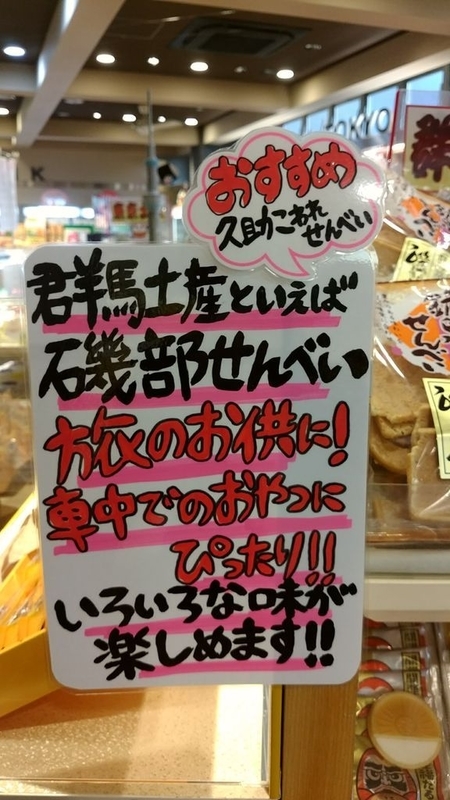 おすすめ
久助こわれ
せんべい
群馬土産といえば
磯部せんべい
旅のお供に!
車中でのおやつに
ぴったり!!
いろいろな味が
楽しめます!!
TOKYO
K